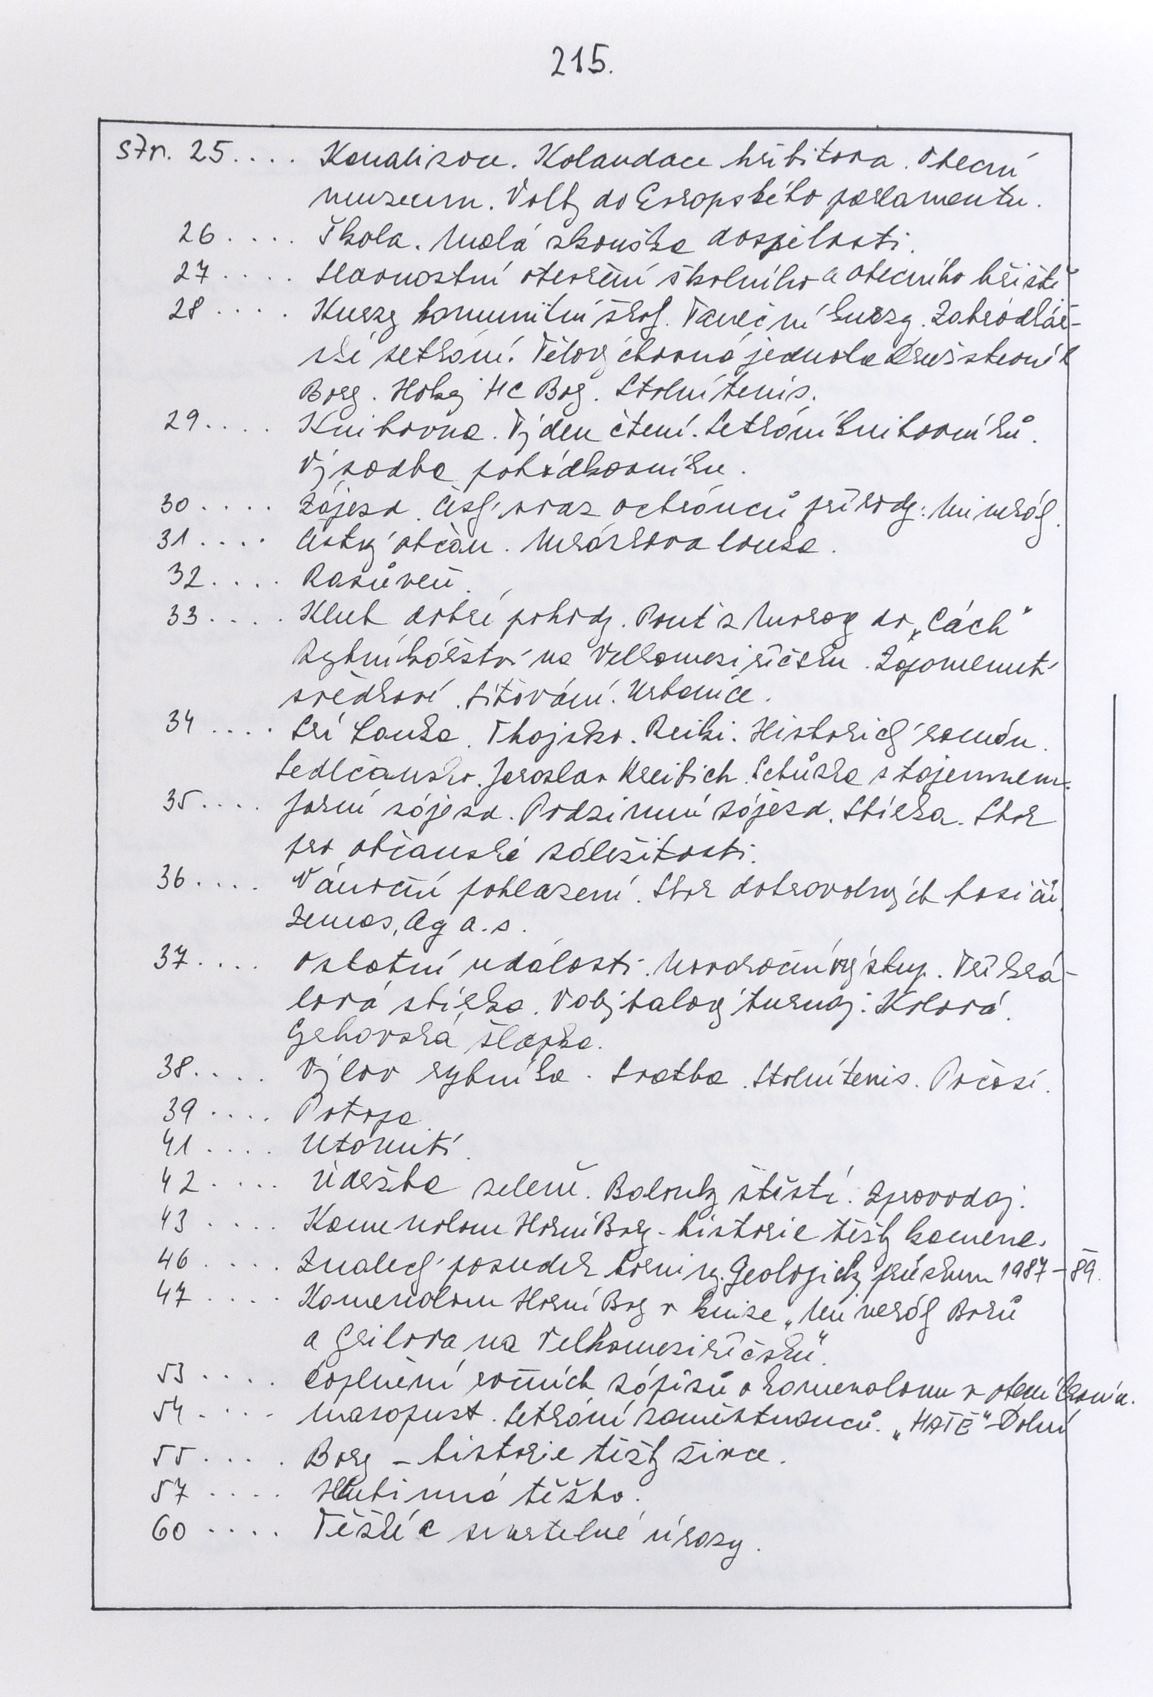 215.
str. 25.... Kanalizace. Kolaudace hřbitova. Obecní
muzeum. Volby do Evropského parlamentu.
26.... Škola. Malá zkouška dospělosti.
27.... Slavnostní otevření školního a obecního hřiště
28.... Kurzy komunitní škol. Taneční kurzy. Zahrádkář-
ské setkání. Tělovýchovná jednota Družstevník
Bory. Hokej HC Bory. Stolní tenis.
29.... Knihovna. Týden čtení. Setkání knihovníků.
Výsadba pohádkovníku.
30.... Zájezd. Český svaz ochránců přírody. Minerály.
31.... Čestný občan. Mrázkova louka.
32.... Rasůveň.
33.... Klub dobré pohody. Pouť z Moravy do „Cách"
Rybníkářství na Velkomeziříčsku. Zapomenutí
svědkové. Síťování. Urbanice.
34.... Srí Lanka. Thajsko. Reiki. Historický román.
Sedlčansko. Jaroslav Kreibich. Schůzka s tajemnem.
35.... Jarní zájezd. Podzimní zájezd. Sbírka. Sbor
pro občanské záležitosti.
36.... Vánoční pohlazení. Sbor dobrovolných hasičů.
Zemos, Ag a.s.
37.... Ostatní události. Novoroční výstup. Tříkrá-
lová sbírka. Volejbalový turnaj. Krlová.
Gehovská šlapka.
38.... Výlov rybníka. Svatba. Stolní tenis. Počasí.
39.... Potopa.
41.... Utonutí.
42.... Údržba zeleně. Balonky štěstí. Zpravodaj.
43.... Kamenolom Horní Bory - historie těžby kamene.
46.... Znalecký posudek horniny. Geologický průzkum 1987-89.
47.... Kamenolom Horní Bory v knize „Minerály Borů
a Cyrilova na Velkomeziříčsku".
53.... Doplnění ročních zápisů o kamenolomu v obecní kronice.
54.... Masopust. Setkání zaměstnanců. „HATĚ" Dolní
55.... Bory - historie těžby živce.
57.... Hlubinná těžba.
60.... Těžké a smrtelné úrazy.